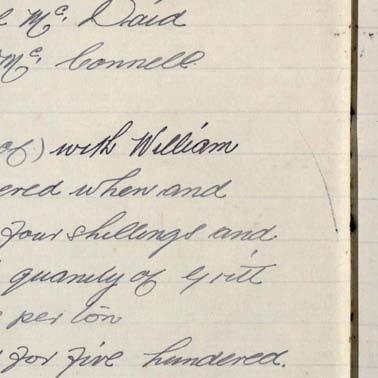 Mc. Daid
Mc. Connell
of) with William
ered when and
four shillings and
quantity of Gritt
per ton
for five hundered.